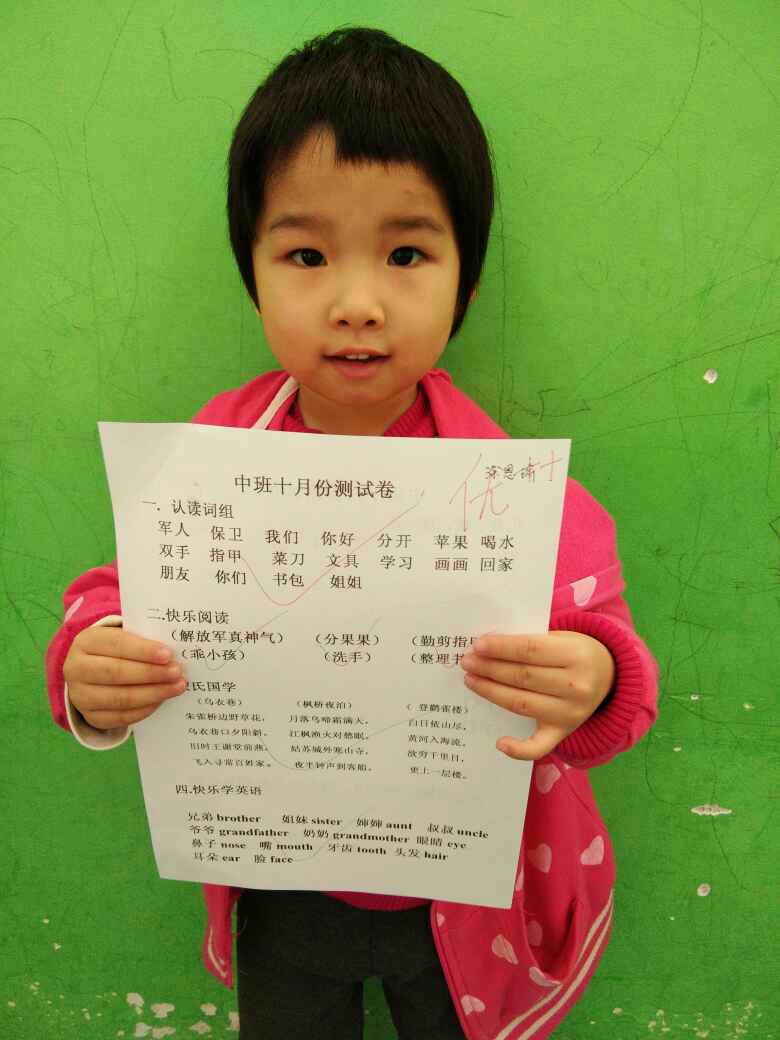 中班十月份测试卷
优+
一. 认读词组
军人 保卫 我们 你好 分开 苹果 喝水
双手 指甲 菜刀 文具 学习 画画 回家
朋友 你们 书包 姐姐
二.快乐阅读
（解放军真神气） （分果果） （勤剪指
（乖小孩） （洗手） （整理
氏国学
（乌衣巷） （枫桥夜泊） （登鹳雀楼）
朱雀桥边野草花， 月落乌啼霜满天， 白日依山尽，
乌衣巷口夕阳斜。 江枫渔火对愁眠。 黄河入海流。
旧时王谢堂前燕， 姑苏城外寒山寺， 欲穷千里目，
飞入寻常百姓家。 夜半钟声到客船。 更上一层楼。
四.快乐学英语
兄弟 brother 姐妹 sister 婶婶 aunt 叔叔 uncle
爷爷 grandfather 奶奶 grandmother 眼睛 eye
鼻子 nose 嘴 mouth 牙齿 tooth 头发 hair
耳朵 ear 脸 face